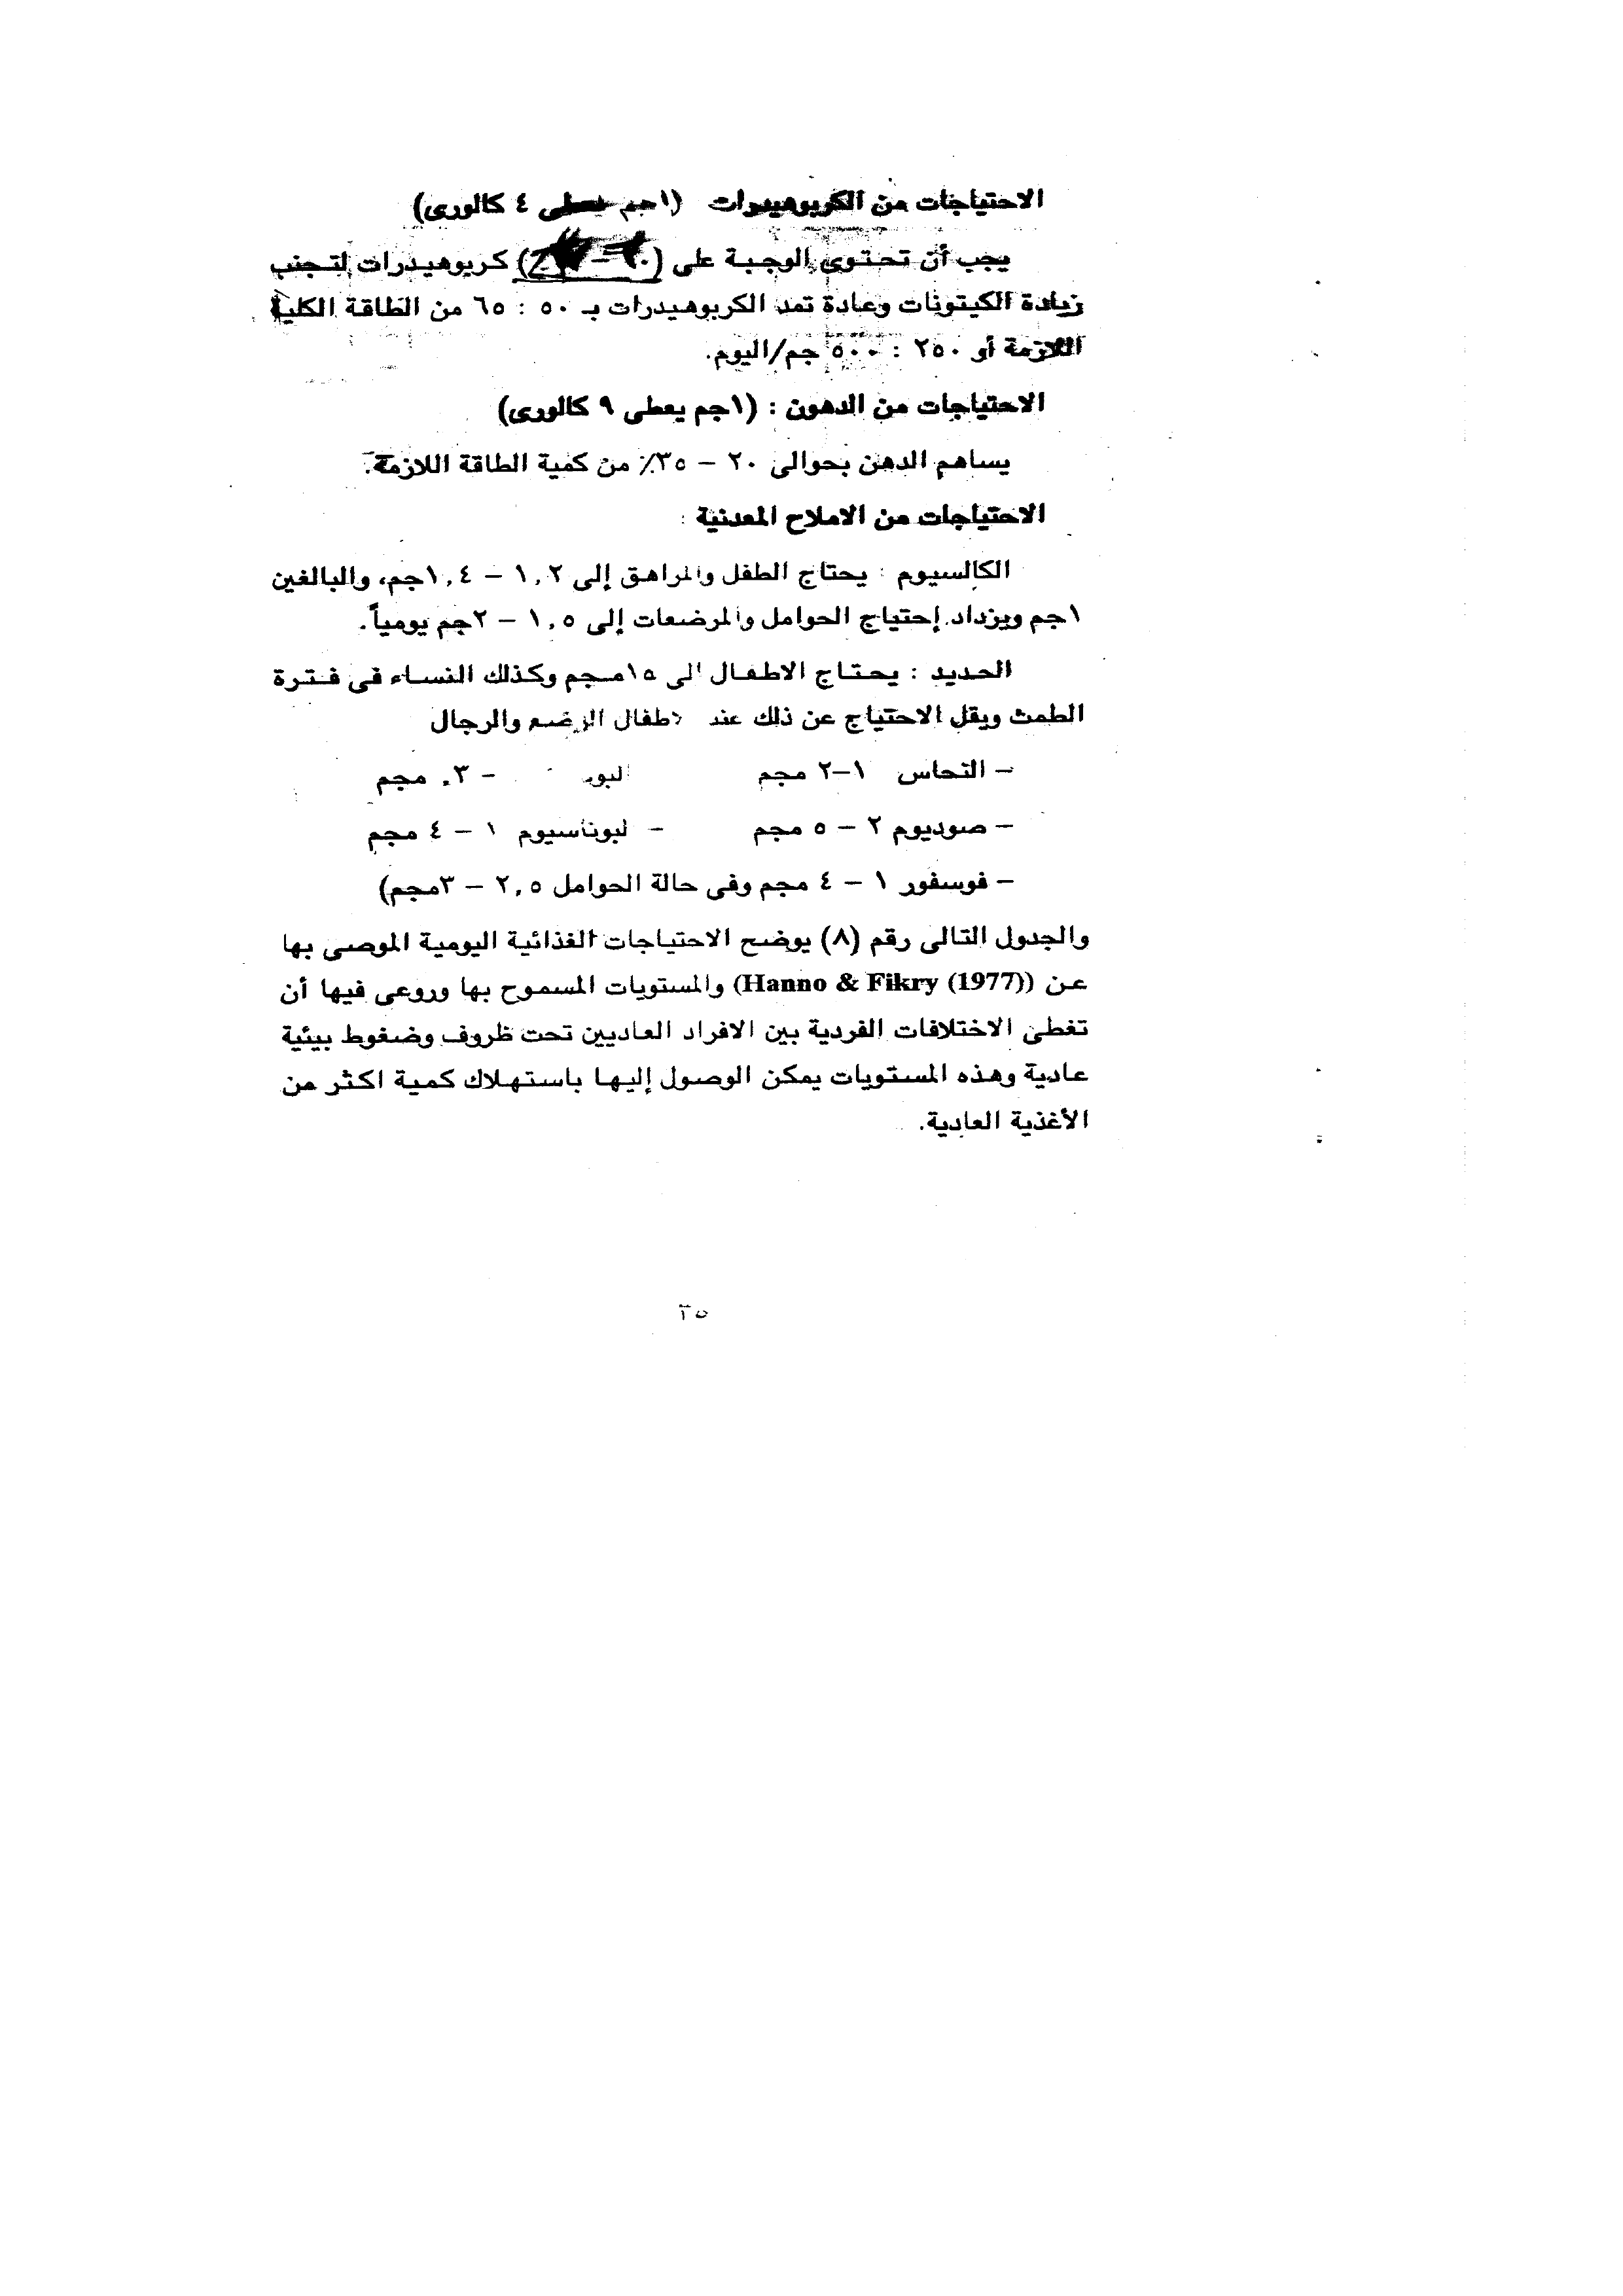 الاحتياجات من الكربوهيدرات (١جم يعطى ٤ كالورى)
يجب أن تحتوى الوجبة على كربوهيدرات لتجنب
زيادة الكيتونات وعادة تمد الكربوهيدرات بـ ٥٠ : ٦٥ من الطاقة الكلية
اللازمة أو ٢٥٠ : ٥٠٠ جم/اليوم.
الاحتياجات من الدهون : (١جم يعطى ٩ كالورى)
يساهم الدهن بحوالى ٢٠ – ٣٥٪ من كمية الطاقة اللازمة.
الاحتياجات من الاملاح المعدنية :
الكالسيوم : يحتاج الطفل والمراهق إلى ١,٢ – ١,٤جم، والبالغين
١جم ويزداد إحتياج الحوامل والمرضعات إلى ١,٥ – ٢جم يومياً.
الحديد : يحتاج الاطفال الى ١٥مجم وكذلك النساء فى فترة
الطمث ويقل الاحتياج عن ذلك عند الاطفال الرضع والرجال
– النحاس ١–٢ مجم – ٣. مجم
– صوديوم ٢ – ٥ مجم – لبوتاسيوم ١ – ٤ مجم
– فوسفور ١ – ٤ مجم وفى حالة الحوامل ٢,٥ – ٣مجم)
والجدول التالى رقم (٨) يوضح الاحتياجات الغذائية اليومية الموصى بها
عن (Hanno & Fikry (1977)) والمستويات المسموح بها وروعى فيها أن
تغطى الاختلافات الفردية بين الافراد العاديين تحت ظروف وضغوط بيئية
عادية وهذه المستويات يمكن الوصول إليها باستهلاك كمية اكثر من
الأغذية العادية.